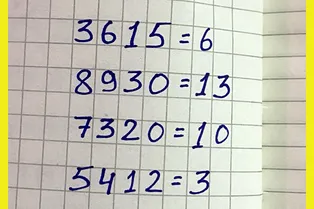 3615=6
8930=13
7320=10
5412=3